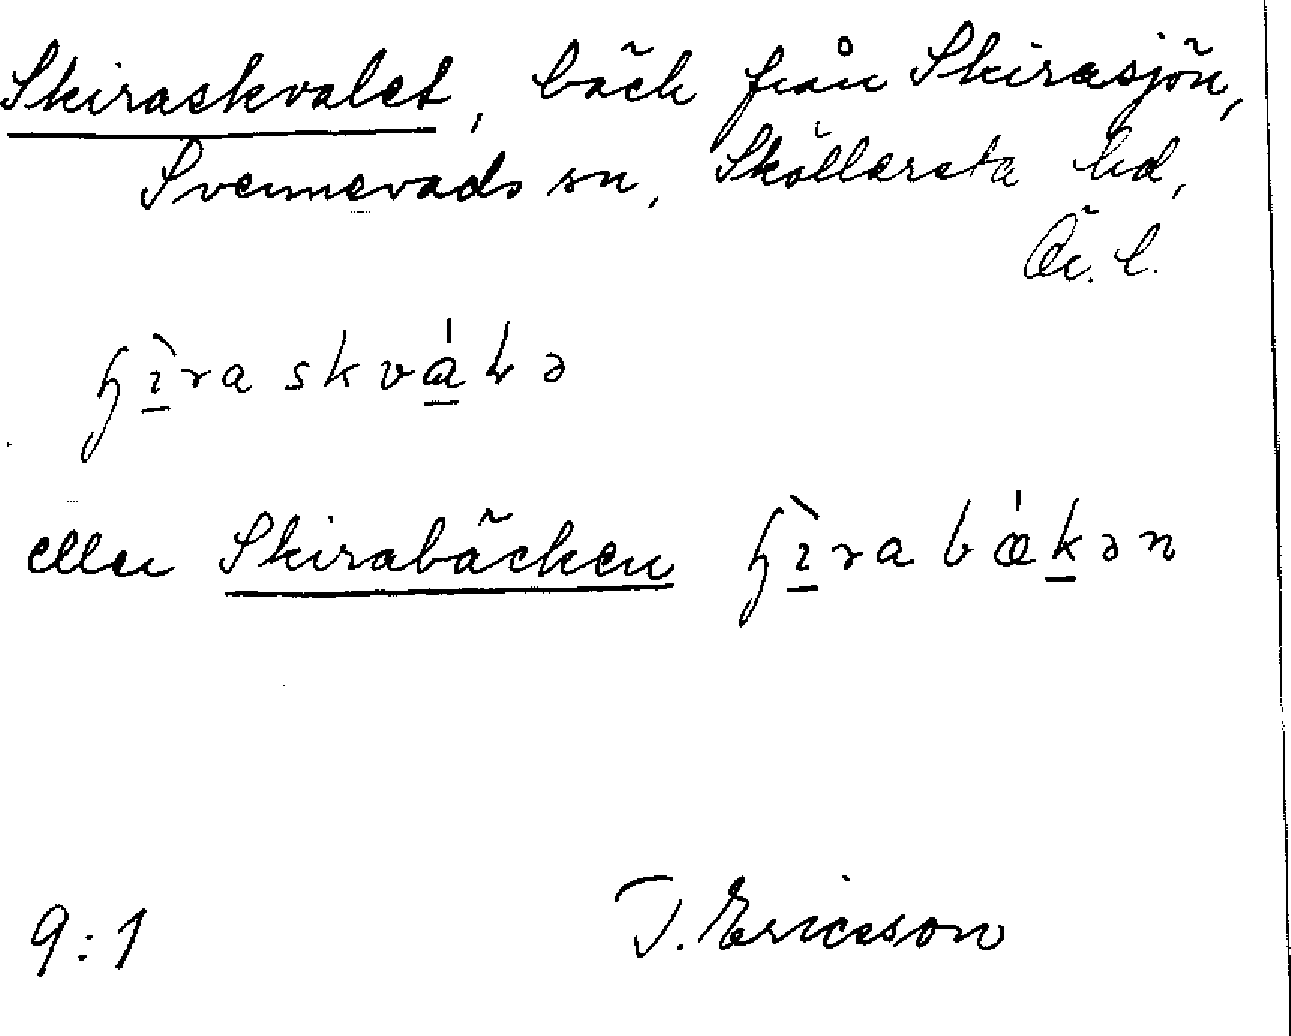 Skiraskvalet, bäck från Skirasjön,
Svennevads sn, Sköllersta hd,
Ör. l.
eller Skirabäcken
9:1 T. Ericsson